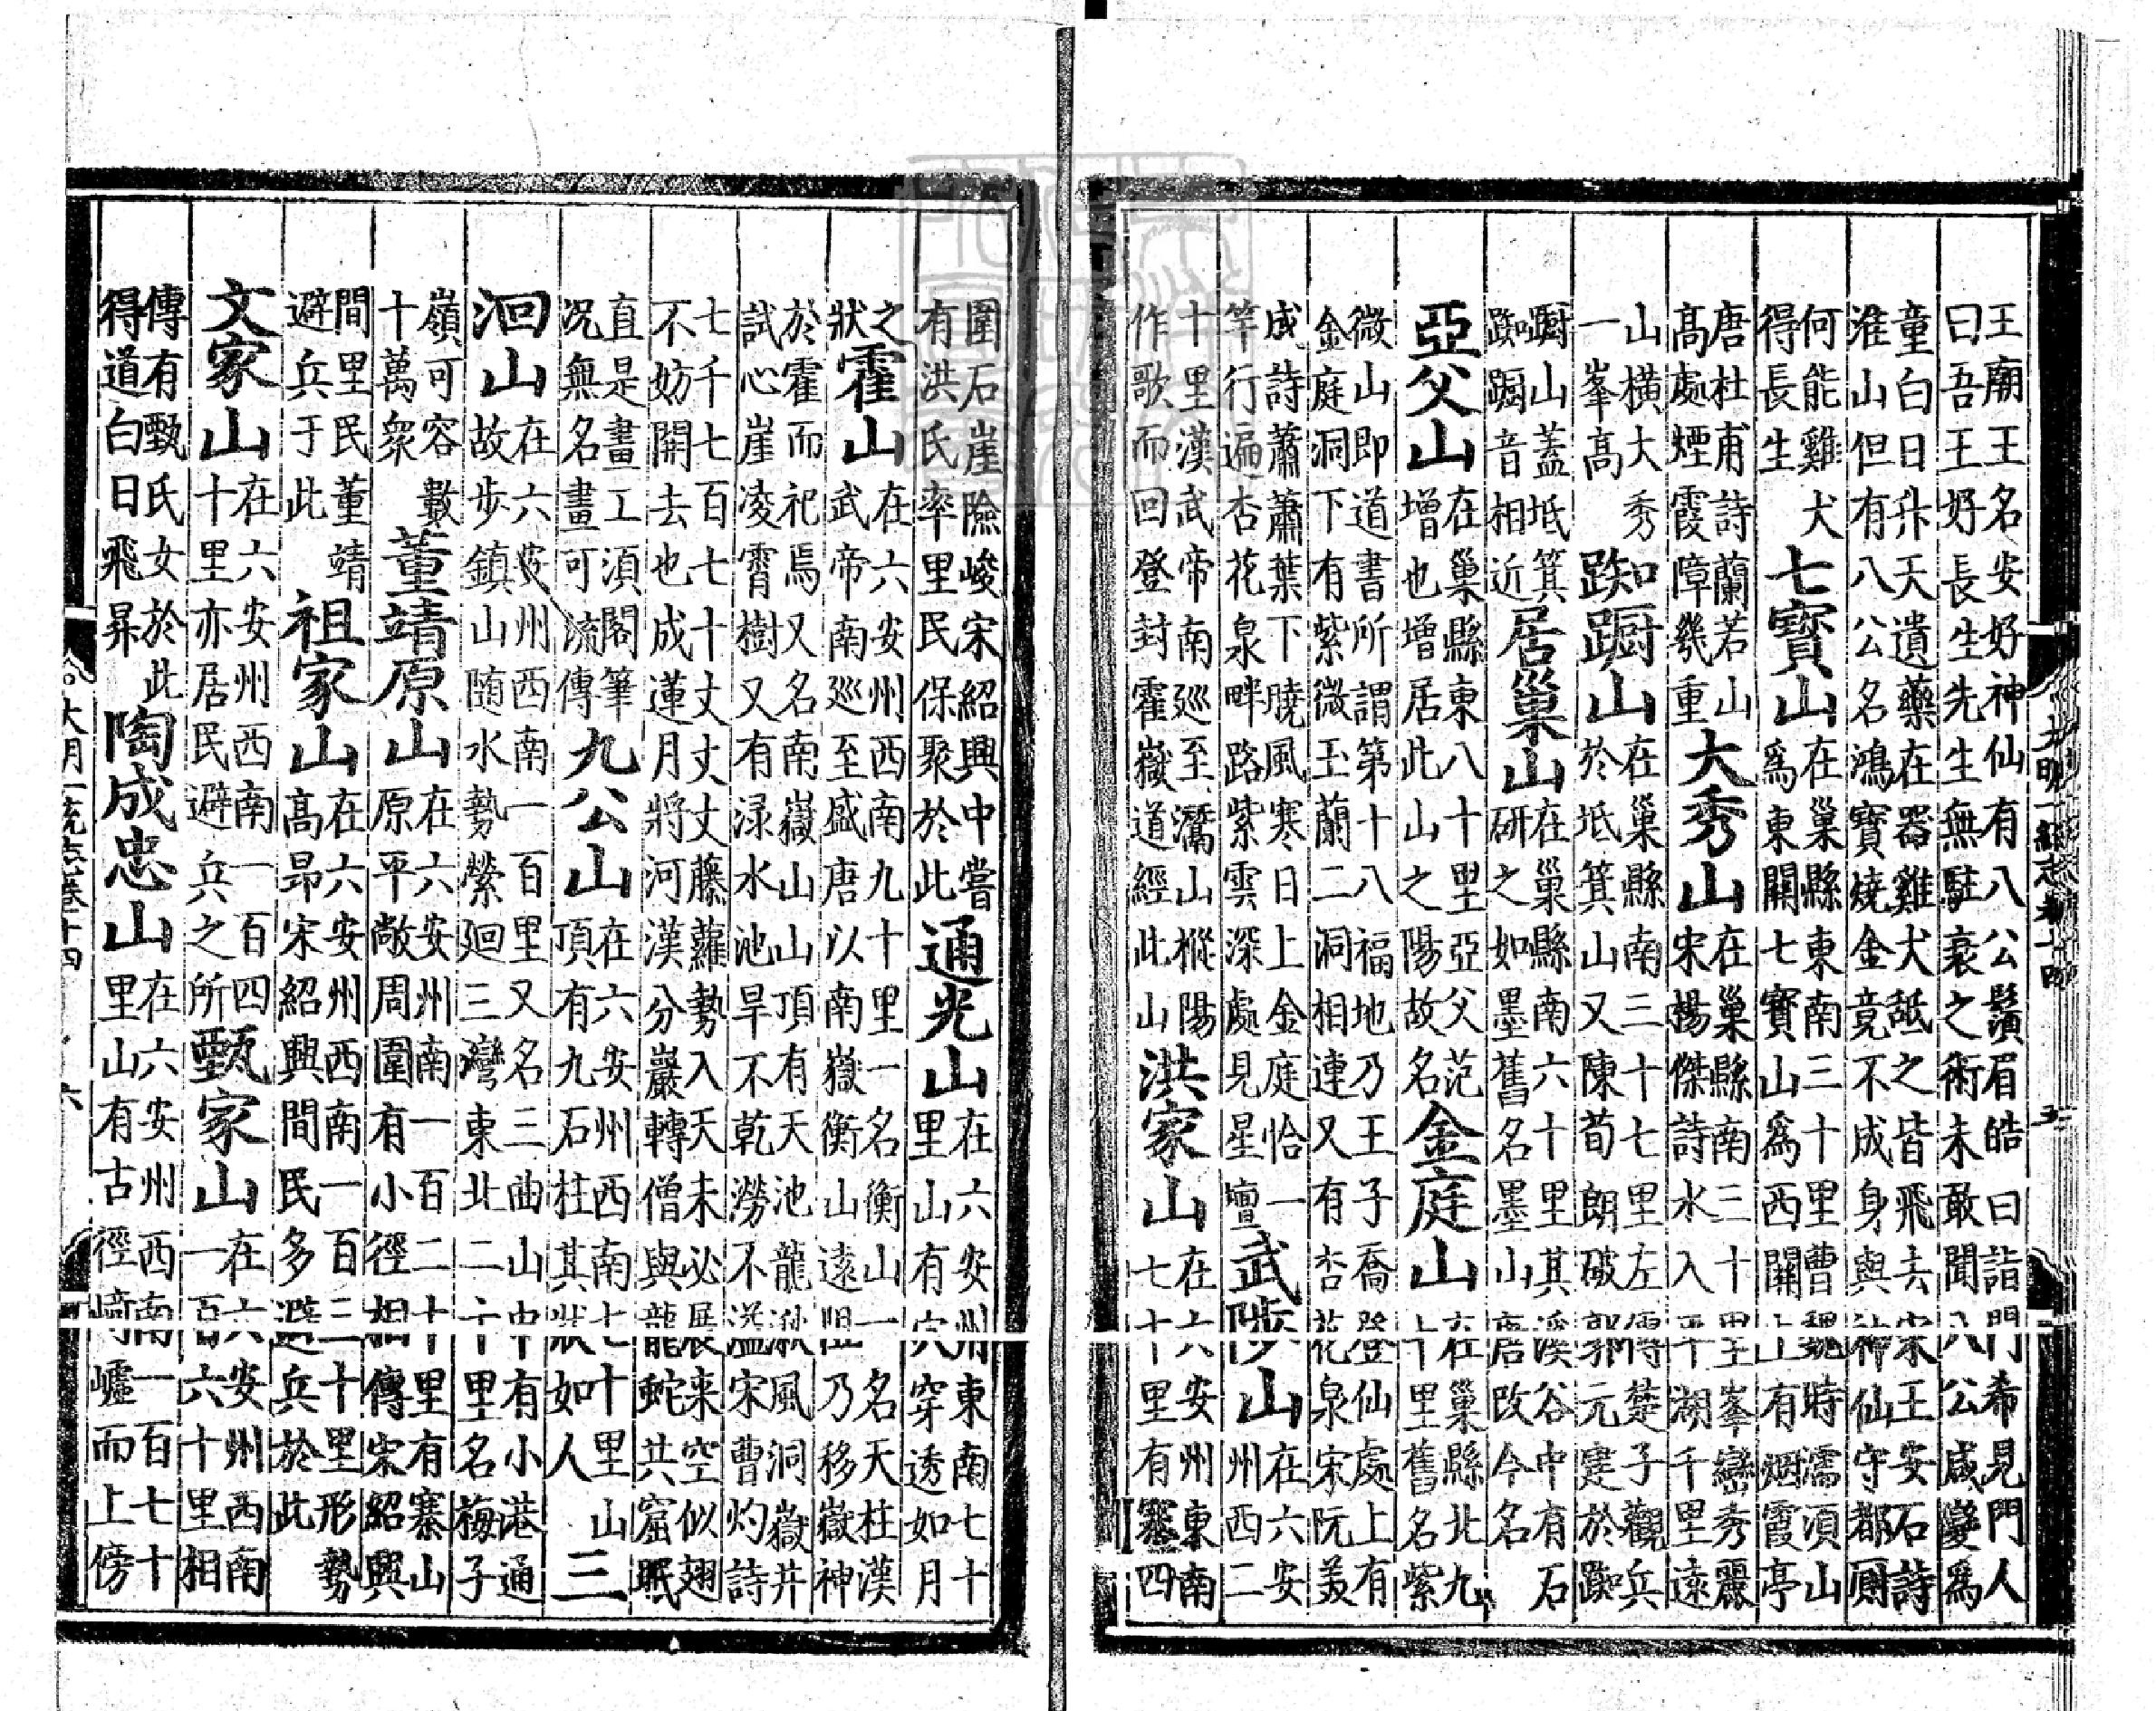 王廟王名安好神仙有八公鬚眉皓曰詣門希見門人
曰吾王好長生先生無駐衰之術未敢聞八公咸變爲
童白日升天遺藥在器雞犬舐之皆飛去宋王安石詩
淮山但有八公名鴻寶燒金竟不成身與神仙守都厠
何能雞犬
得長生
七寶山
在巢縣東南三十里曹魏時濡須山
爲東關七寶山爲西關上有煙霞亭
唐杜甫詩蘭若山
高處煙霞障幾重
大秀山
在巢縣南三十里峯巒秀麗
宋楊傑詩水入平湖千里遠
山橫大秀
一峯高
踟躕山
在巢縣南三十七里左傳楚子觀兵
於坻箕山又陳荀朗破郭元建於踟
躕山蓋坻箕
踟躕音相近
居巢山
在巢縣南六十里其溪谷中有石
研之如墨舊名墨山唐改今名
亞父山
在巢縣東八十里亞父范
增也增居此山之陽故名
金庭山
在巢縣北九
十里舊名紫
微山即道書所謂第十八福地乃王子喬登仙處上有
金庭洞下有紫微玉蘭二洞相連又有杏花泉宋阮美
成詩蕭蕭葉下曉風寒日上金庭恰一
竿行遍杏花泉畔路紫雲深處見星壇
武陟山
在六安
州西二
十里漢武帝南巡至灊山樅陽
作歌而回登封霍嶽道經此山
洪家山
在六安州東南
七十里有寨四
圍石崖險峻宋紹興中嘗
有洪氏率里民保聚於此
通光山
在六安州東南七十
里山有穴穿透如月
之
狀
霍山
在六安州西南九十里一名衡山一名天柱漢
武帝南巡至盛唐以南嶽衡山遠阻乃移嶽神
於霍而祀焉又名南嶽山山頂有天池龍湫風洞嶽井
試心崖凌霄樹又有淥水池旱不乾澇不溢宋曹灼詩
七千七百七十丈丈丈藤蘿勢入天未必展来空似翅
不妨開去也成蓮月將河漢分巖轉僧與龍蛇共窟眠
直是畫工須閣筆
况無名畫可流傳
九公山
在六安州西南七十里山
頂有九石柱其狀如人
三
洄山
在六安州西南一百里又名三曲山中有小港通
故步鎮山随水勢縈廻三灣東北二十里名梅子
嶺可容數
十萬衆
董靖原山
在六安州南一百二十里有寨山
原平敞周圍有小徑相傳宋紹興
間里民董靖
避兵于此
祖家山
在六安州西南一百三十里形勢
高昂宋紹興間民多避兵於此
文家山
在六安州西南一百四
十里亦居民避兵之所
甄家山
在六安州西南
一百六十里相
傳有甄氏女於此
得道白日飛昇
陶成忠山
在六安州西南一百七十
里山有古徑﨑嶇而上傍
大明一統志卷十四
五
大明一統志卷十四
六